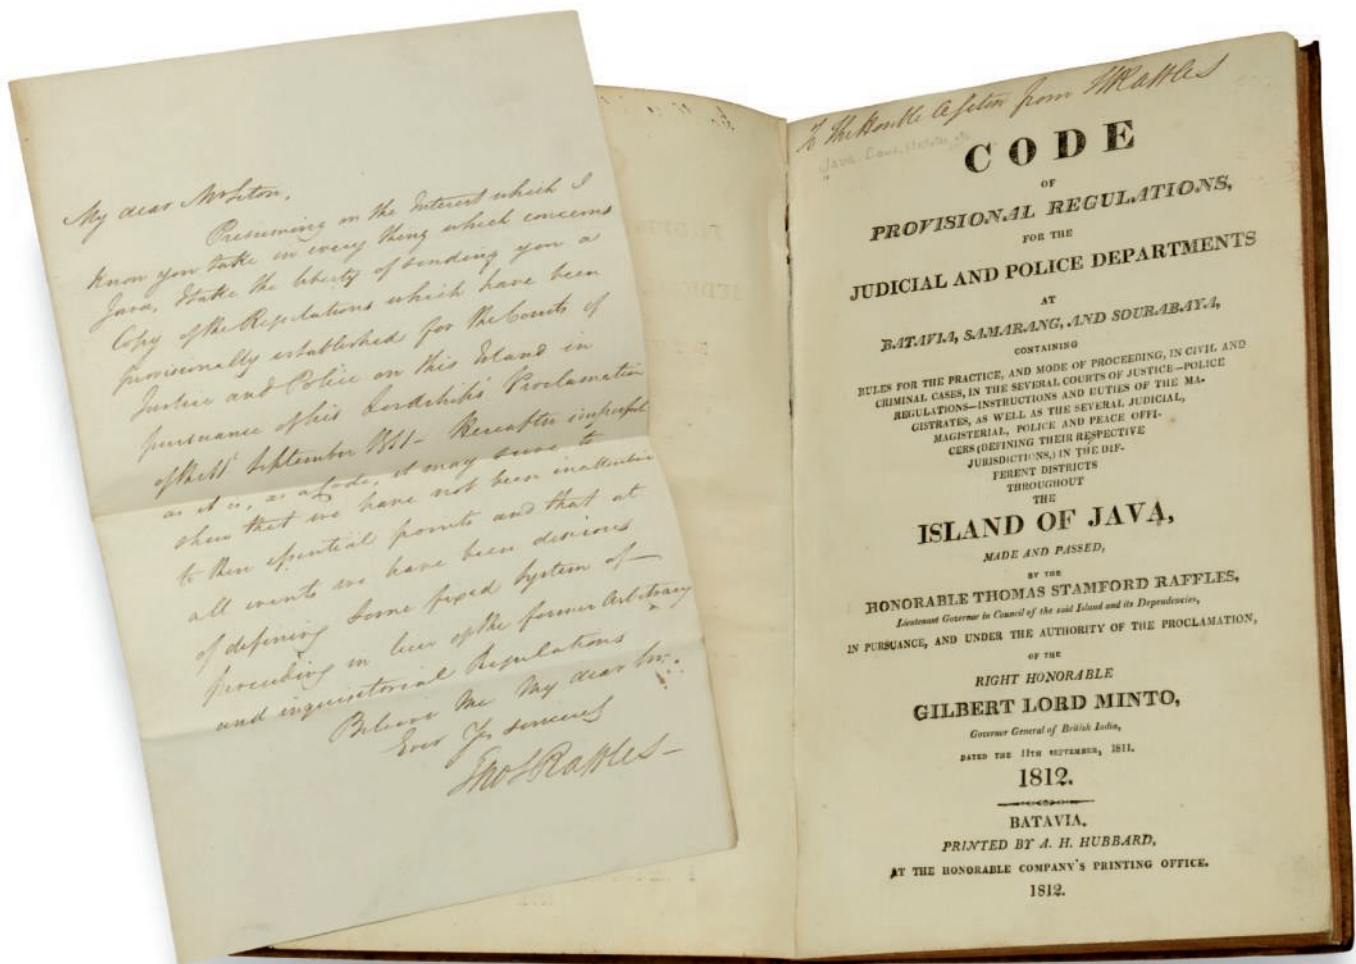 My dear Mr Seton,
Presuming on the Interest which I
know you take in every thing which concerns
Java, I take the liberty of sending you a
Copy of the Regulations which have been
provisionally established for the Courts of
Justice and Police on this Island in
pursuance of his Lordship's Proclamation
of the 11th September 1811 – Hereafter imperfect
as it is, as a Code, it may serve to
shew that we have not been inattentive
to then essential points and that at
all events we have been desirous
of defining some fixed System of
proceeding in lieu of the former Arbitrary
and inquisitorial Regulations
Believe me My dear Sir
Ever Yrs sincerely
Thos Raffles –
To The Honble A Seton from T S Raffles
Java. Laws, statutes, etc.
CODE
OF
PROVISIONAL REGULATIONS,
FOR THE
JUDICIAL AND POLICE DEPARTMENTS
AT
BATAVIA, SAMARANG, AND SOURABAYA,
CONTAINING
RULES FOR THE PRACTICE, AND MODE OF PROCEEDING, IN CIVIL AND
CRIMINAL CASES, IN THE SEVERAL COURTS OF JUSTICE—POLICE
REGULATIONS—INSTRUCTIONS AND DUTIES OF THE MA-
GISTRATES, AS WELL AS THE SEVERAL JUDICIAL,
MAGISTERIAL, POLICE AND PEACE OFFI-
CERS (DEFINING THEIR RESPECTIVE
JURISDICTIONS,) IN THE DIF-
FERENT DISTRICTS
THROUGHOUT
THE
ISLAND OF JAVA,
MADE AND PASSED,
BY THE
HONORABLE THOMAS STAMFORD RAFFLES,
Lieutenant Governor in Council of the said Island and its Dependencies,
IN PURSUANCE, AND UNDER THE AUTHORITY OF THE PROCLAMATION,
OF THE
RIGHT HONORABLE
GILBERT LORD MINTO,
Governor General of British India,
DATED THE 11TH SEPTEMBER, 1811.
1812.
BATAVIA.
PRINTED BY A. H. HUBBARD,
AT THE HONORABLE COMPANY'S PRINTING OFFICE.
1812.